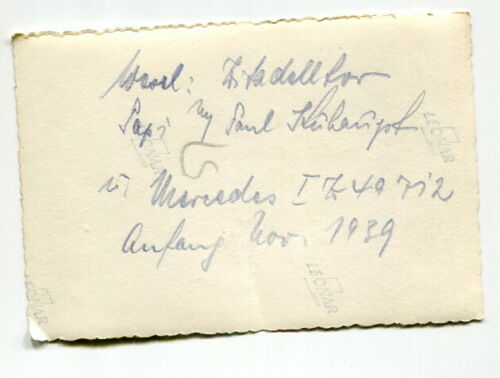 Wesel: Zitadelltor
Papi Paul
u. Mercedes IZ 49712
Anfang Nov. 1939
LEONAR
LEONAR
LEONAR
LEONAR